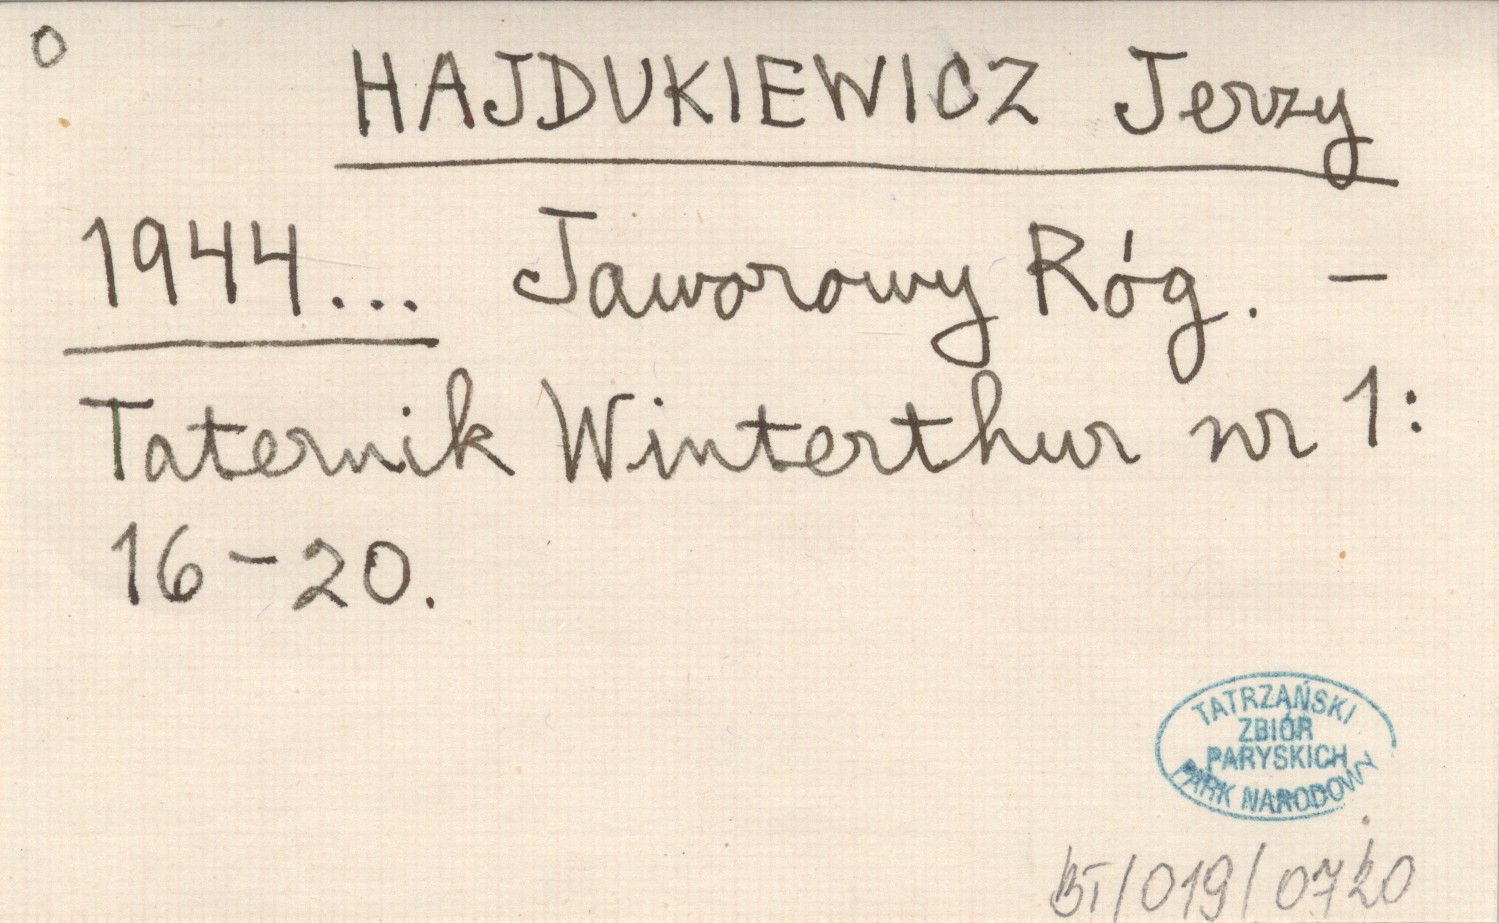 O
HAJDUKIEWICZ Jerzy
1944... Jaworowy Róg. –
Taternik Winterthur nr 1:
16–20.
TATRZAŃSKI
ZBIÓR
PARYSKICH
PARK NARODOWY
BT/019/0720